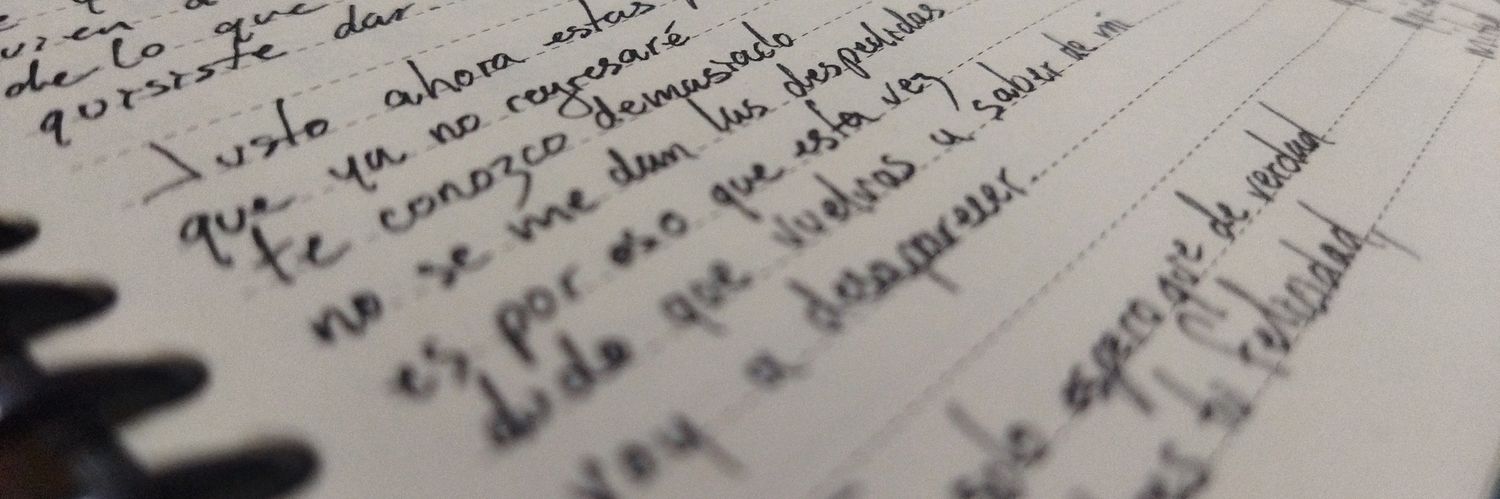 de lo que
quisiste dar
Justo ahora estas
que ya no regresaré
te conozco demasiado
no se me dan las despedidas
es por eso que esta vez
dudo que vuelvas a saber de mi
voy a desaparecer.
solo espero que de verdad
tu felicidad